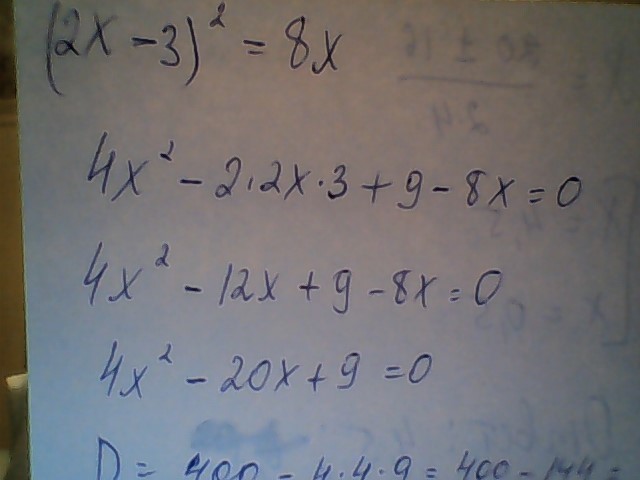 (2x - 3)² = 8x
4x² - 2·2x·3 + 9 - 8x = 0
4x² - 12x + 9 - 8x = 0
4x² - 20x + 9 = 0
D = 400 - 4·4·9 = 400 - 144 =